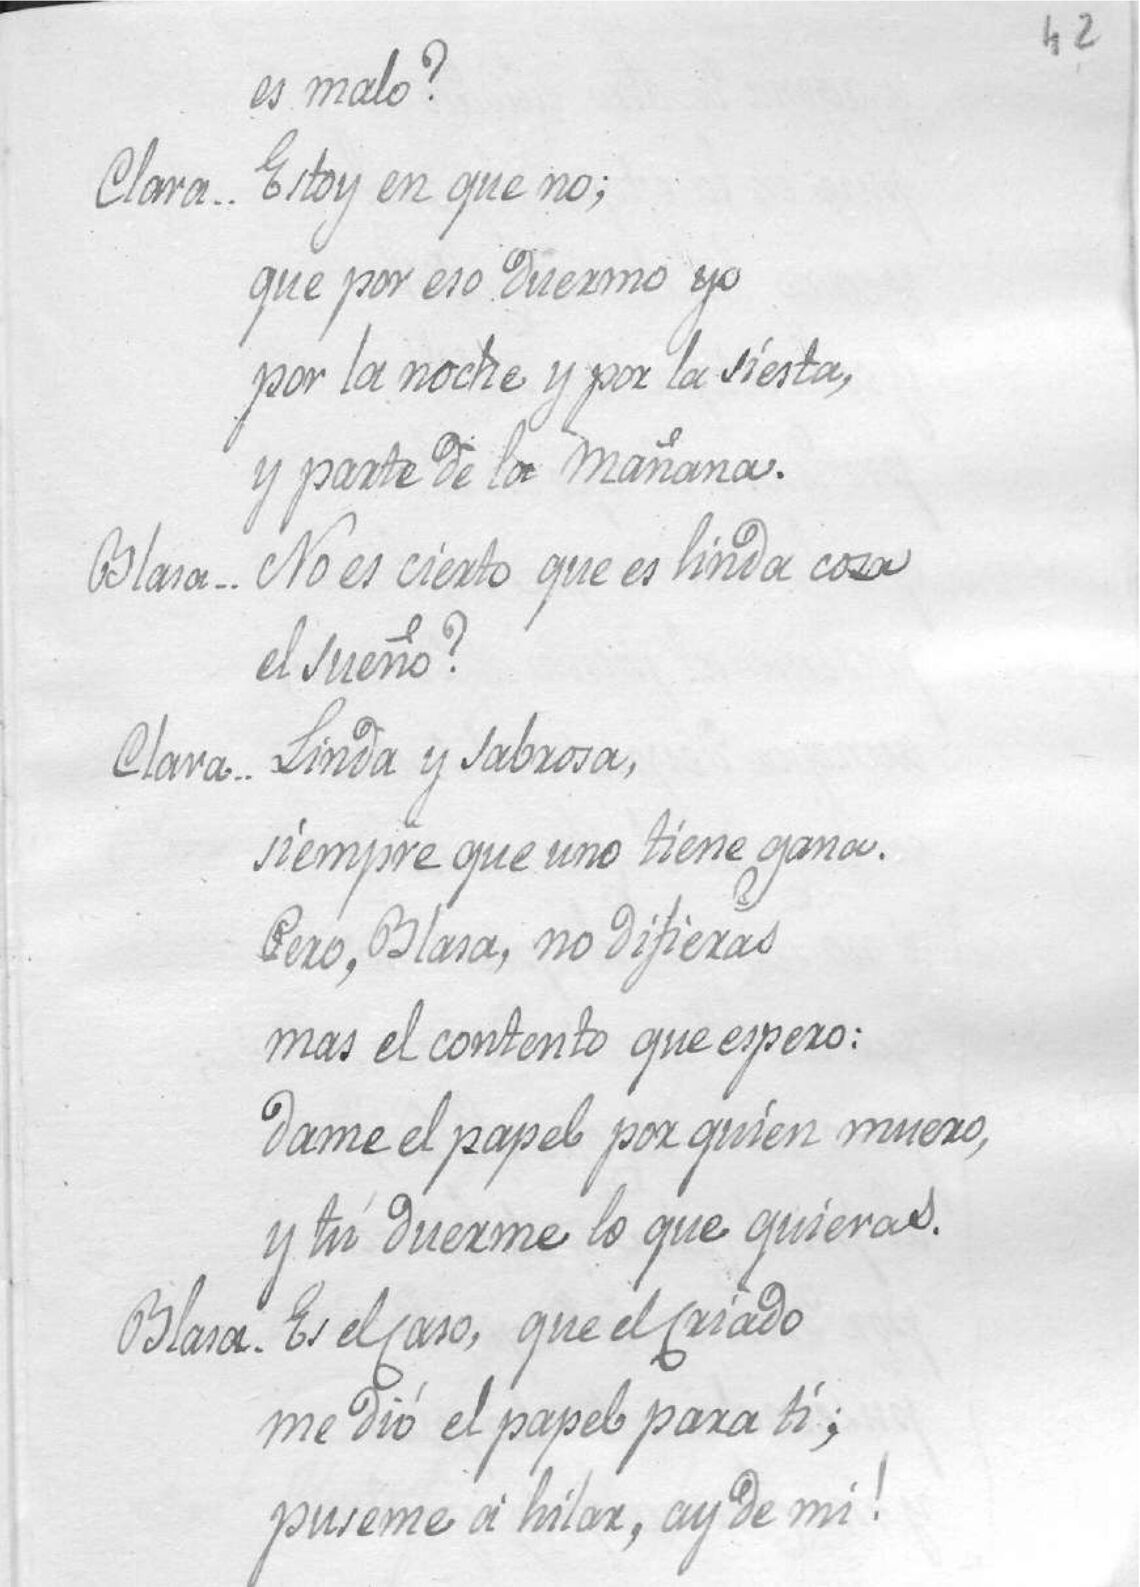 42
es malo?
Clara.. Estoy en que no;
que por eso duermo yo
por la noche y por la siesta,
y parte de la mañana.
Blasa.. No es cierto que es linda cosa
el sueño?
Clara.. Linda y sabrosa,
siempre que uno tiene gana.
Pero, Blasa, no difieras
mas el contento que espero:
dame el papel por quien muero,
y tú duerme lo que quieras.
Blasa. Es el Caso, que el Criado
me dió el papel para ti;
puseme á hilar, ay de mi!